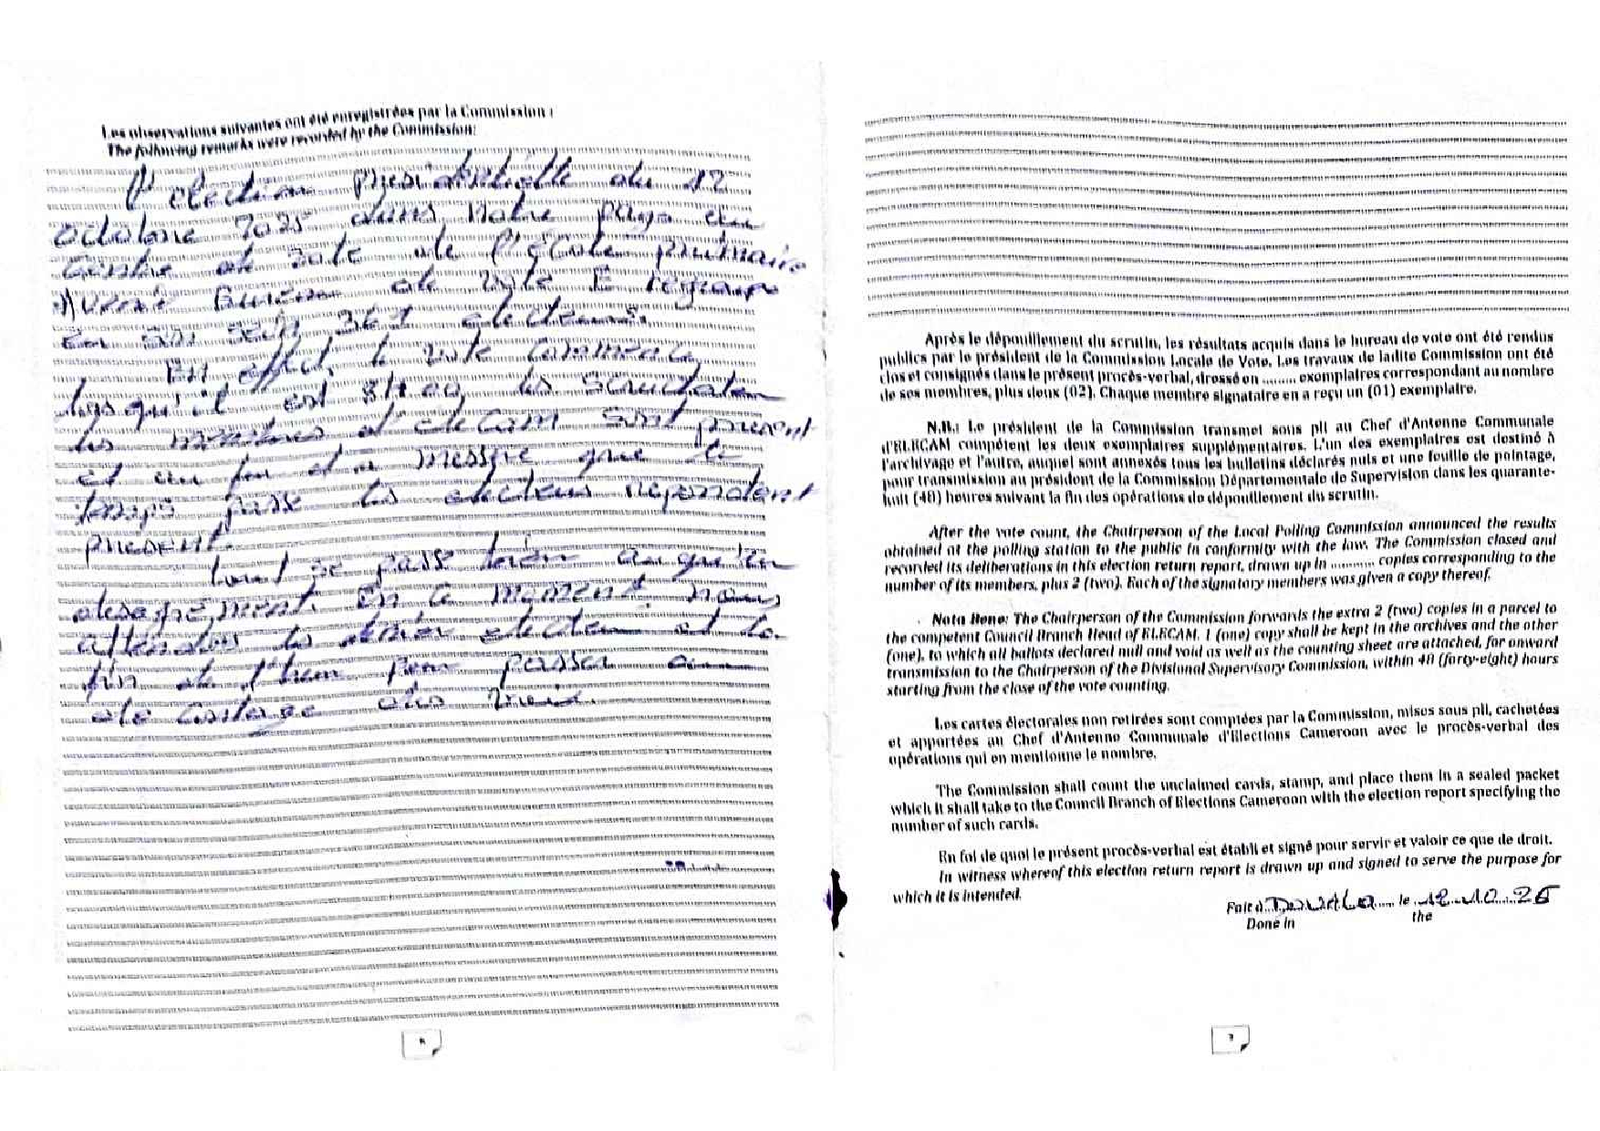 Les observations suivantes ont été enregistrées par la Commission :
The following remarks were recorded by the Commission:
l'election presidentielle du 12
octobre 2025 dans notre pays au
Centre de vote de l'école primaire
Bureau de vote E regroupe
en son sein 367 electeurs.
En effet le vote commence
lorsqu'il est 8H00 les scrutateu
les membres d'elecam sont present
et au fur et a messure que le
temps passe les electeurs repondent
present.
tout se passe bien aucu'un
desagrement. En ce moment nous
attendons le dernier electeur et la
fin de l'heure pour passer au
des
6
Après le dépouillement du scrutin, les résultats acquis dans le bureau de vote ont été rendus
publics par le président de la Commission Locale de Vote. Les travaux de ladite Commission ont été
clos et consignés dans le présent procès-verbal, dressé en ......... exemplaires correspondant au nombre
de ses membres, plus deux (02). Chaque membre signataire en a reçu un (01) exemplaire.
N.B.: Le président de la Commission transmet sous pli au Chef d'Antenne Communale
d'ELECAM compétent les deux exemplaires supplémentaires. L'un des exemplaires est destiné à
l'archivage et l'autre, auquel sont annexés tous les bulletins déclarés nuls et une feuille de pointage,
pour transmission au président de la Commission Départementale de Supervision dans les quarante-
huit (48) heures suivant la fin des opérations de dépouillement du scrutin.
After the vote count, the Chairperson of the Local Polling Commission announced the results
obtained at the polling station to the public in conformity with the law. The Commission closed and
recorded its deliberations in this election return report, drawn up in ........... copies corresponding to the
number of its members, plus 2 (two). Each of the signatory members was given a copy thereof.
Nota Bene: The Chairperson of the Commission forwards the extra 2 (two) copies in a parcel to
the competent Council Branch Head of ELECAM. 1 (one) copy shall be kept in the archives and the other
(one), to which all ballots declared null and void as well as the counting sheet are attached, for onward
transmission to the Chairperson of the Divisional Supervisory Commission, within 48 (forty-eight) hours
starting from the close of the vote counting.
Les cartes électorales non retirées sont comptées par la Commission, mises sous pli, cachetées
et apportées au Chef d'Antenne Communale d'Elections Cameroon avec le procès-verbal des
opérations qui en mentionne le nombre.
The Commission shall count the unclaimed cards, stamp, and place them in a sealed packet
which it shall take to the Council Branch of Elections Cameroon with the election report specifying the
number of such cards.
En foi de quoi le présent procès-verbal est établi et signé pour servir et valoir ce que de droit.
In witness whereof this election return report is drawn up and signed to serve the purpose for
which it is intended.
Fait à Douala le 12.10.25
Done in the
7